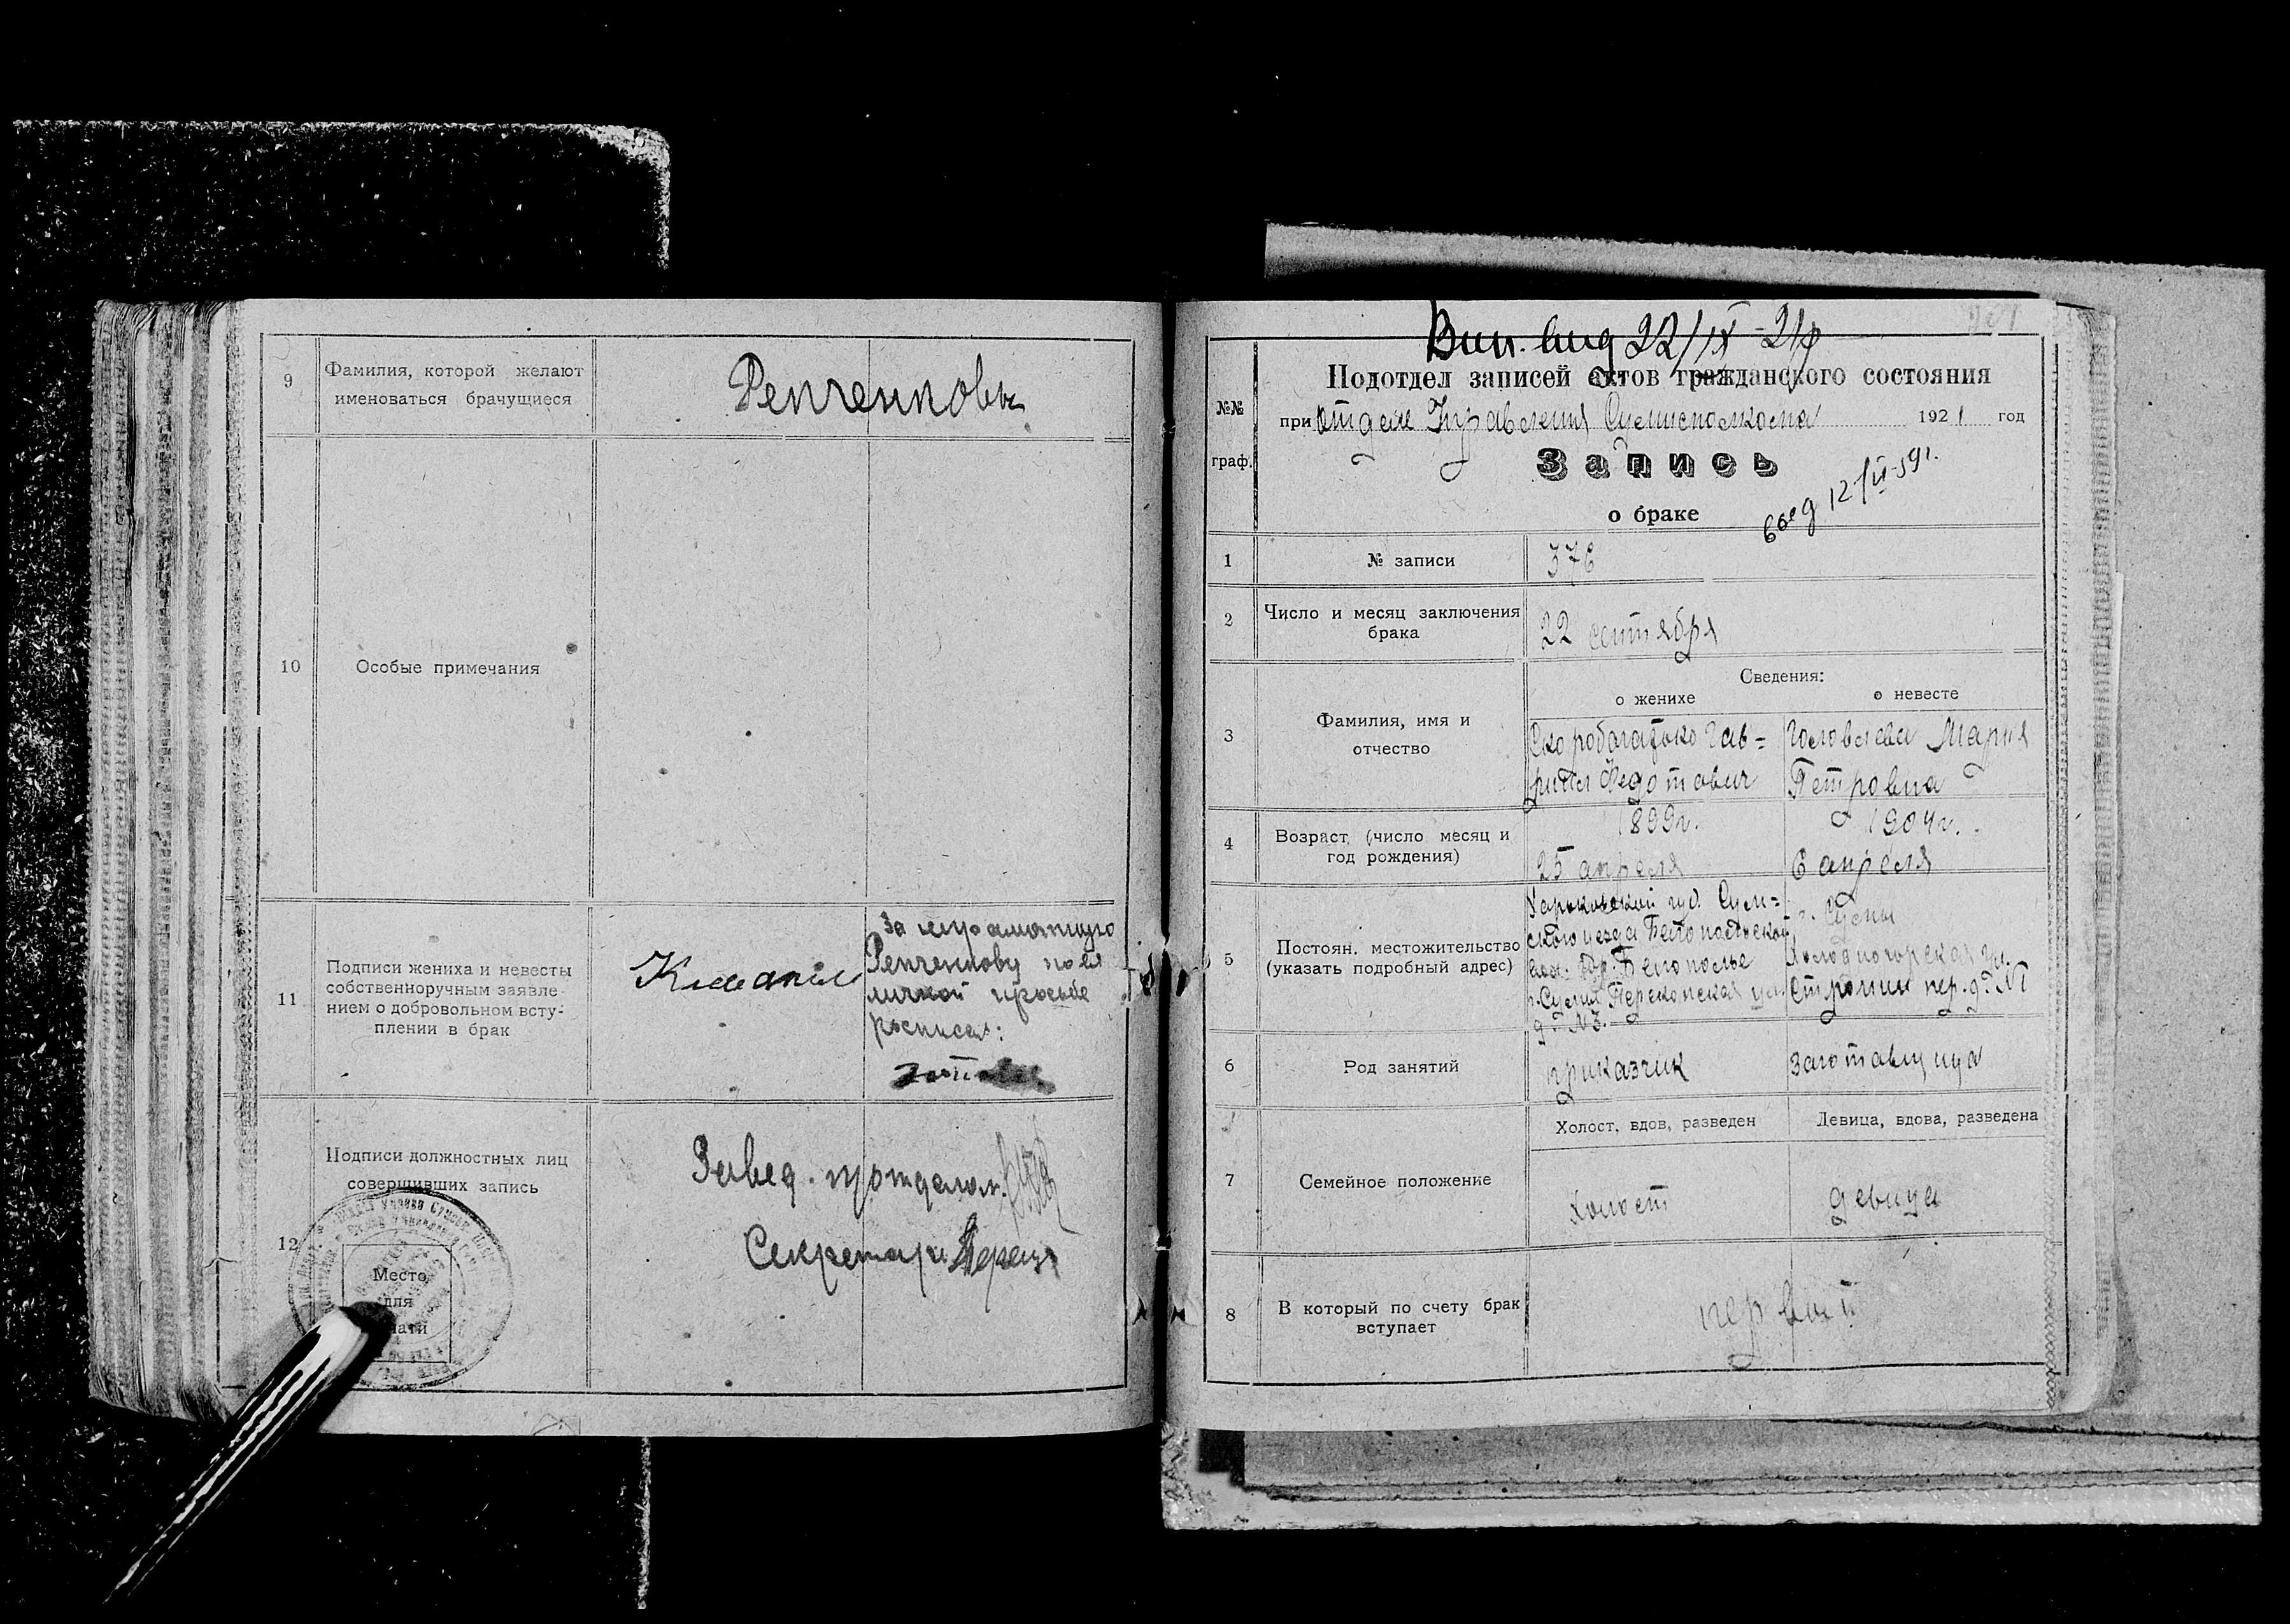 9
Фамилия, которой желают
именоваться брачущиеся
Репченковы
10
Особые примечания
11
Подписи жениха и невесты
собственноручным заявле-
нием о добровольном всту-
плении в брак
За неграмотную
Репченкову по ея
личной просьбе
росписал:
12
Подписи должностных лиц
совершивших запись
Завед. п/отделом
Секретарь
Место
для
чати
Вып. 22/IX-21
№№
граф.
Подотдел записей актов гражданского состояния
при Отделе Управления Сумисполкома 1921 год
Запись
о браке
12/II-59г.
1
№ записи
376
2
Число и месяц заключения
брака
22 сентября
Сведения:
о женихе
о невесте
3
Фамилия, имя и
отчество
Скоробагатько Гав=
риил Федотович
Головлева Мария
Петровна
4
Возраст (число месяц и
год рождения)
1899г.
25 апреля
1904г.
6 апреля
5
Постоян. местожительство
(указать подробный адрес)
Харьковской губ. Сум=
ского уезда Белопольской
вол. гор. Белополье
г. Сумы Перекопская ул.
д. №3.
г. Сумы
Холодногорская ул.
пер. д. №1
6
Род занятий
приказчик
заготавщица
7
Семейное положение
Холост, вдов, разведен
Девица, вдова, разведена
холост
девица
8
В который по счету брак
вступает
первый